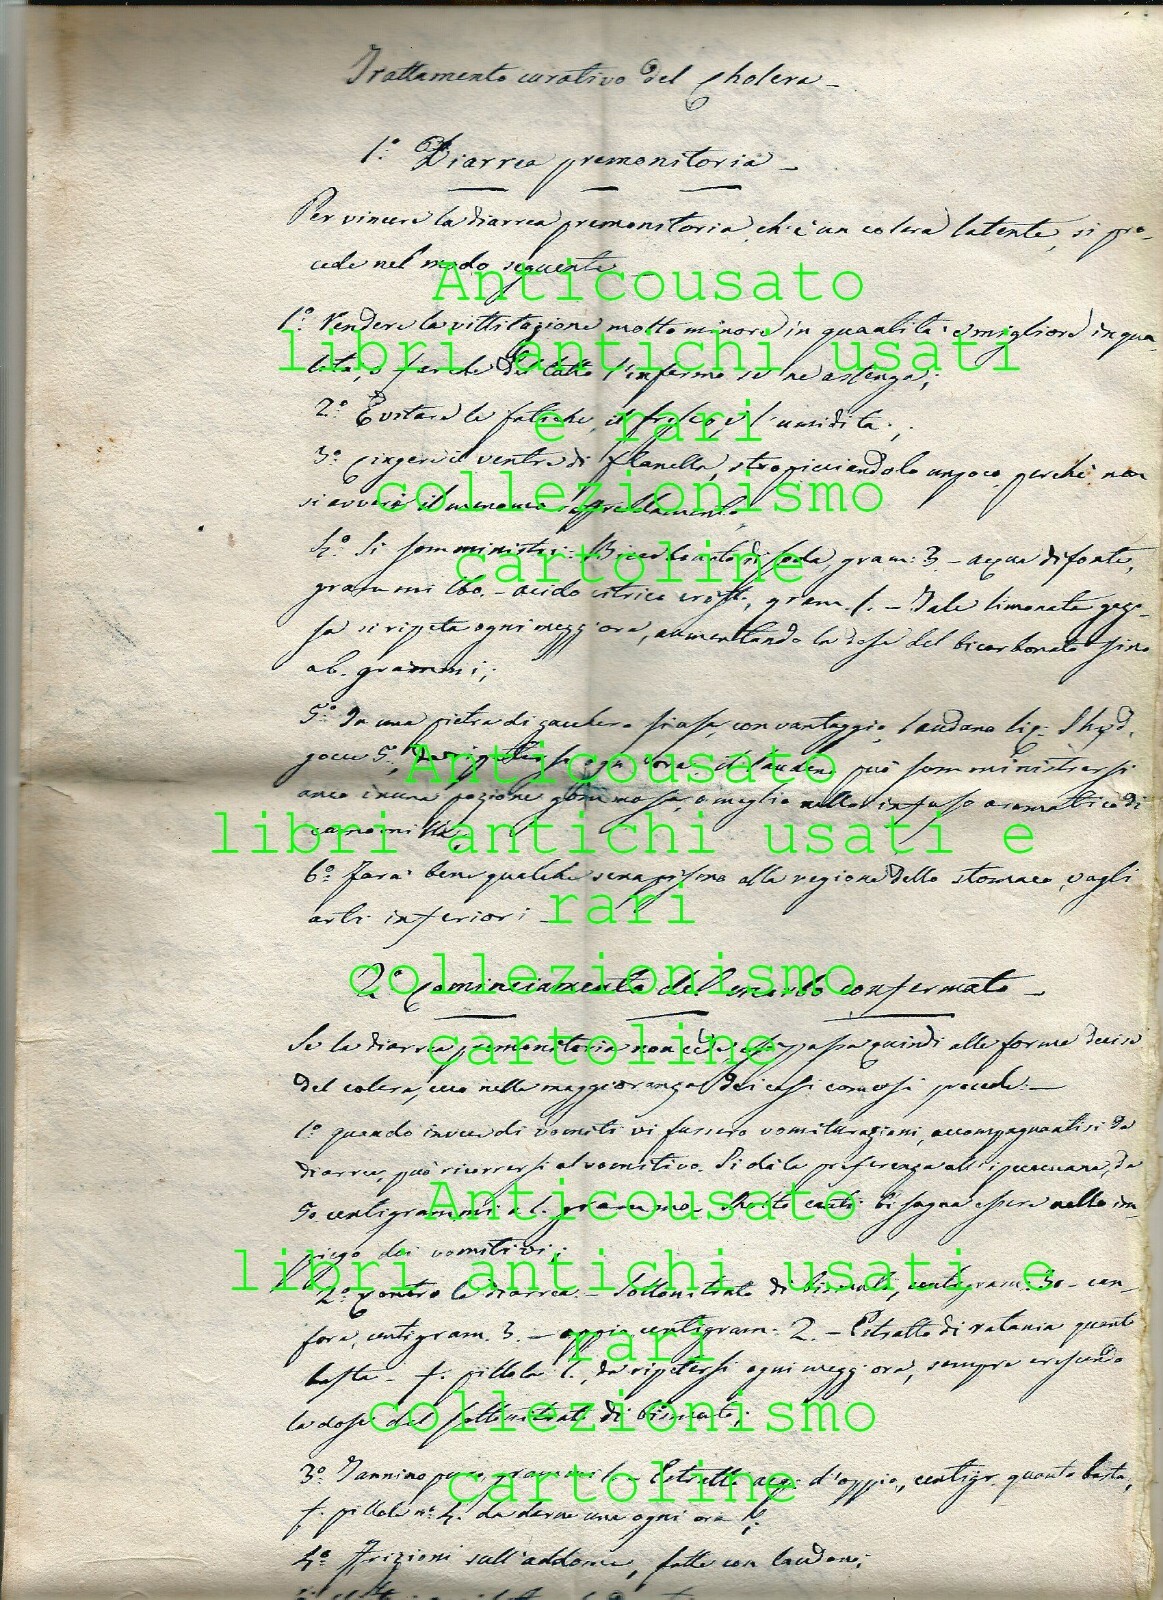 Trattamento curativo del Cholera –
1.° Diarrea premonitoria –
Per vincere la diarrea premonitoria, ch'è un colera latente, si pro-
cede nel modo seguente
Anticousato
1.° Rendere la vittitazione molto minore in quantità e migliore in qua-
libri antichi usati
lità, o far che del tutto l'infermo se ne astenga;
2.° Evitare le fatiche, il fresco, e l'umidità;
e rari
3.° Cingere il ventre di flanella, stropicciandolo un poco, perchè non
collezionismo
si avveri il menomo raffreddamento
4.° Si somministri: Bicarbonato di soda, gram: 3. – acqua di fonte,
cartoline
grammi 160. – acido citrico crist., gram. 1. – Tale limonata gazo-
sa si ripeta ogni mezz'ora, aumentando la dose del bicarbonato sino
a 6. grammi;
5.° In una pietra di zucchero si usa, con vantaggio, laudano liq: Shyd.
gocce 5, da ripetersi ogni ora. Il laudano può somministrarsi
Anticousato
anco in una pozione gommosa, o meglio nello infuso aromatico di
camomilla;
libri antichi usati e
6.° Farà bene qualche senapismo alla regione dello stomaco, o agli
rari
arti inferiori –
collezionismo
2.° Cominciamento del morbo confermato –
cartoline
Se la diarrea premonitoria non cede, essa passa quindi alle forme decise
del colera, ecco nella maggioranza dei casi come si procede: –
1.° quando invece di vomiti vi fussero vomiturazioni, accompagnantisi da
diarrea, può ricorrersi al vomitivo. Si dà la preferenza all'ipecacuana, da
Anticousato
50 centigrammi a 1. grammo. Molto cauti bisogna essere nello im-
piego dei vomitivi;
libri antichi usati e
2.° Contro la diarrea – Sottonitrato di bismuto, centigram: 30 – can-
fora, centigram. 3. – oppio centigram: 2. – Estratto di ratania quanto
rari
basta – f. pillola 1., da ripetersi ogni mezz'ora, sempre crescendo
la dose del sottonitrato di bismuto;
collezionismo
3.° Tannino puro, grammi 1. – Estratto acq. d'oppio, centigr. quanto basta,
cartoline
f. pillole n.° 4. da darne una ogni ora
4.° Frizioni sull'addome, fatte con laudano;